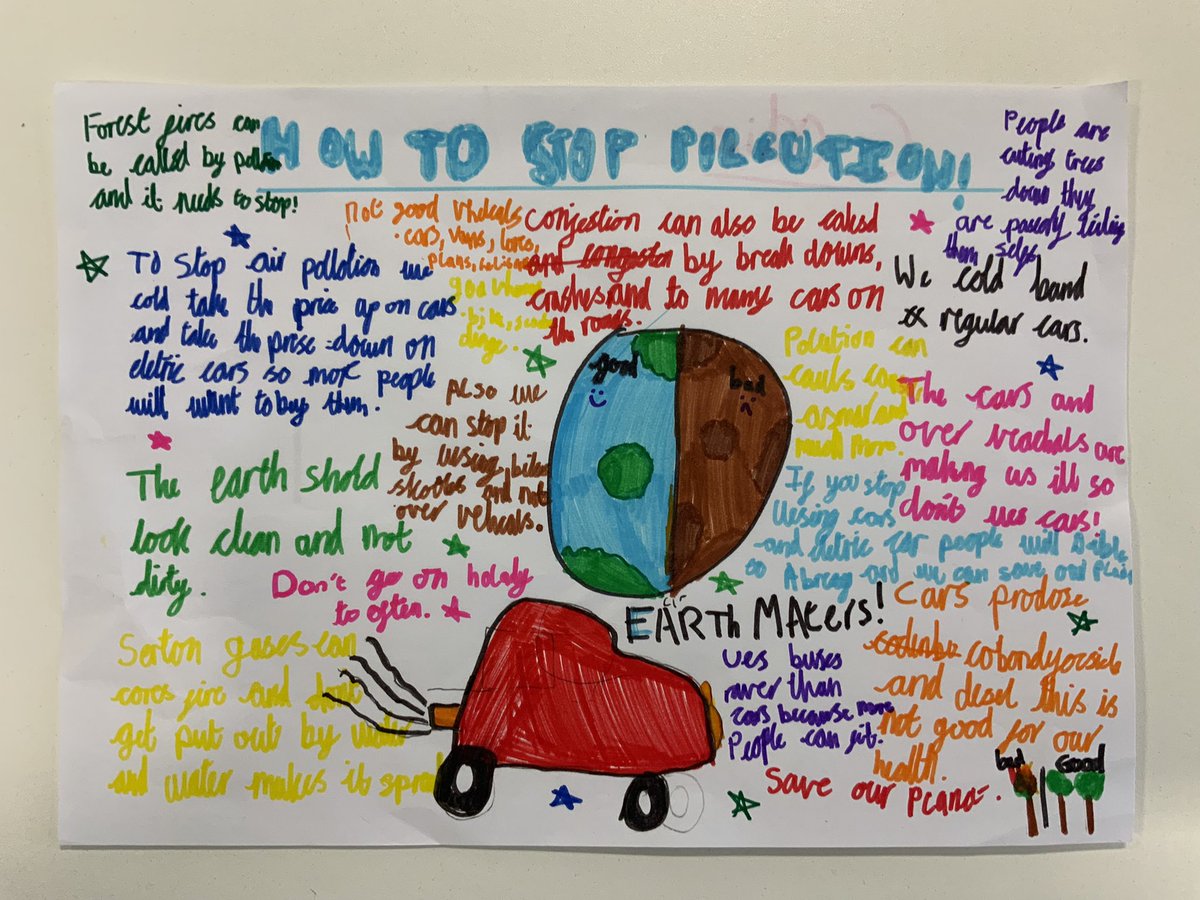 HOW TO STOP POLLUTION!
Forest fires can
be called by
and it needs to stop!
People are
cuting trees
down they
are
them selfs
not good vhdeals
cars, vans,
plans,
Conjestion can also be caused
and congeston by break downs,
crashes and to many cars on
the roads.
We cold band
regular cars.
To stop air pollotion we
cold take the price up on cars
and take the prise down on
eletric cars so more people
will want to buy them.
good
bad
Polution can
much more.
Also we
can stop it
by using
and not
over vehicals.
The cars and
over veachals are
making us ill so
don't ues cars!
The earth shold
look clean and not
dirty.
If you stop
uesing cars
and people will
and we can save our
Don't go on holady
to often.
EARTH MAKERS!
Cars prodose
and desel this is
not good for our
health.
Serton gases can
fire and
get put out by water
and water makes it
ues buses
raver than
cars because more
People can fit.
Save our
bad
Good